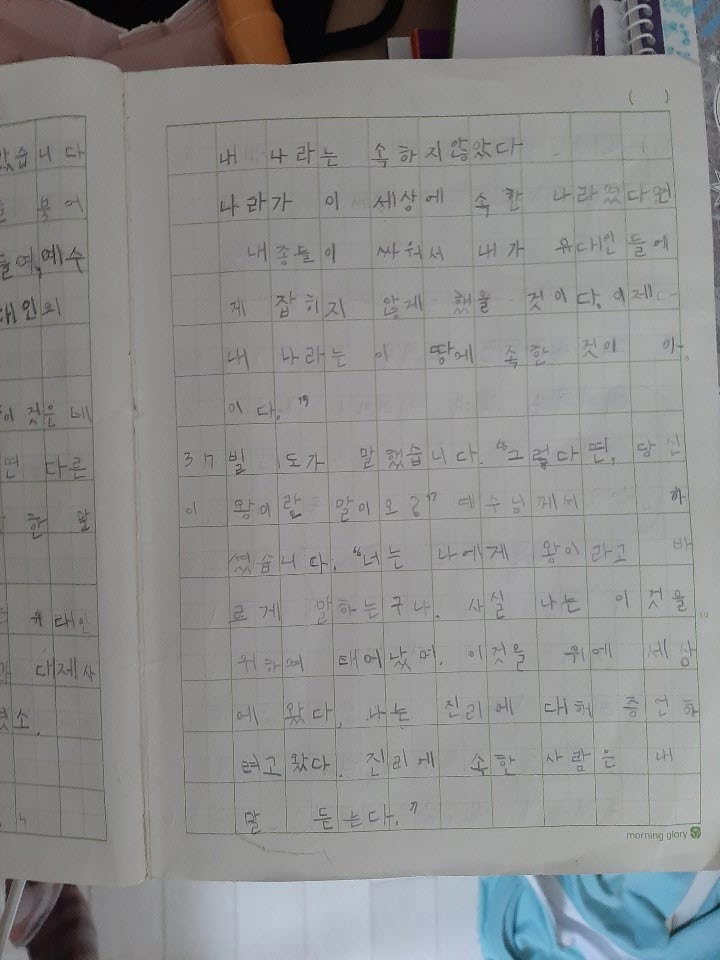 았습니다
물어
들여, 예수
대인의
것은 네
면 다른
한 말
유대인
대제사
소.
( )
내 나라는 속하지않았다
나라가 이 세상에 속한 나라였다면
내종들이 싸워서 내가 유대인들에
게 잡히지 않게 했을 것이다. 이제
내 나라는 이 땅에 속한 것이 아
이다."
37 빌 도가 말했습니다. "그렇다면, 당신
이 왕이란 말이오?" 예수님께서 하
셨습니다. "너는 나에게 왕이라고 바
르게 말하는구나. 사실 나는 이것을
위하여 태어났며. 이것을 위에 세상
에 왔다. 나는 진리에 대해 증언하
려고 왔다. 진리에 속한 사람은 내
말 듣는다."
10
morning glory